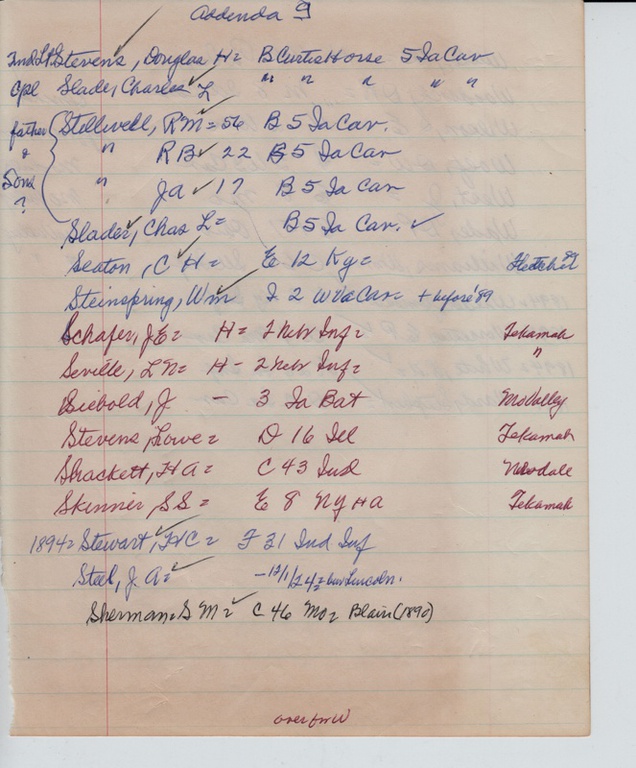 Addenda 9
2nd Lt. Stevens, Douglas H= B Curtis Horse 5 Ia Cav
Cpl Slader, Charles L " " " " "
father Stillwell, RM = 56 B 5 Ia Cav.
& " RB ✓ 22 B 5 Ia Cav
Sons " JA ✓ 17 B 5 Ia Cav
?
Slader, Chas L= B 5 Ia Cav. ✓
Seaton, C H= E 12 Ky= 89
Steinspring, Wm I 2 WVa Cav= + before '89
Schafer, J.E= H= 2 Nebr Inf= Tekamah
Seville, L N= H- 2 Nebr Inf= "
Siebold, J - 3 Ia Bat MoValley
Stevens, Lowe= D 16 Ill Tekamah
Shackett, H A= C 43 Ind
Skinner, S S= E 8 Ny HA Tekamah
1894= Stewart, H C= F 31 Ind Inf
Steel, J A= -12/1/24= bur Lincoln.
Sherman= S M= C 46 Mo= Blair (1890)
over for W